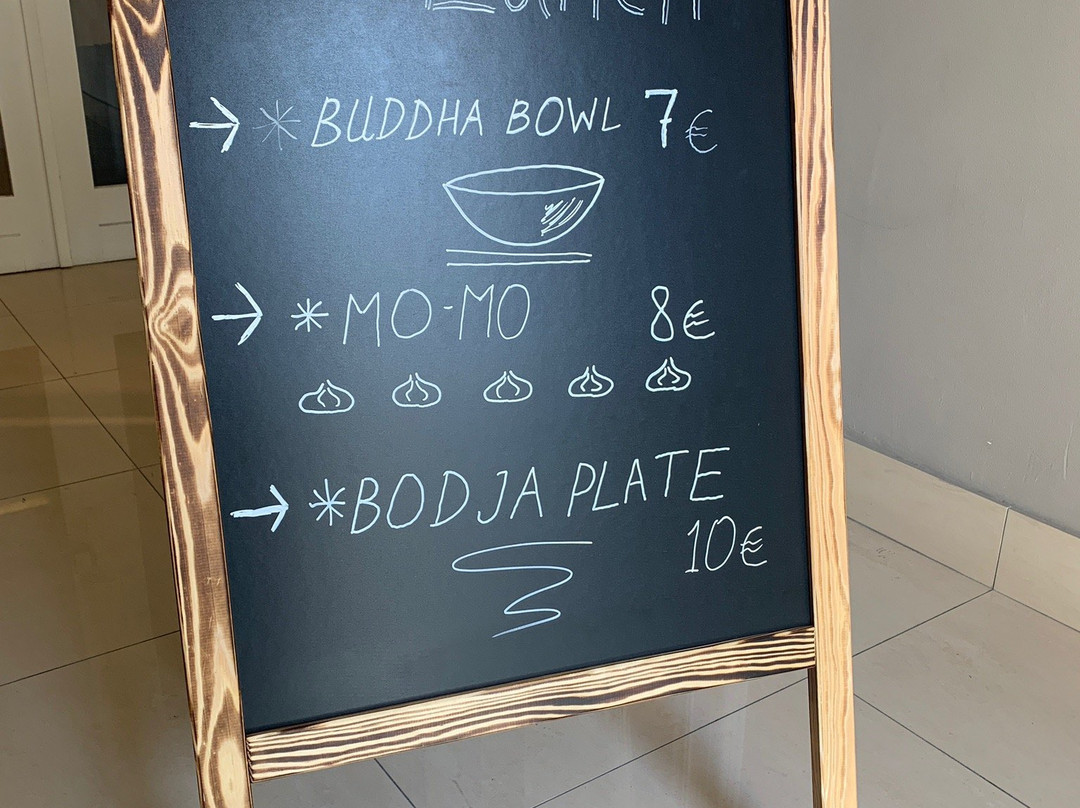 → * BUDDHA BOWL 7€
→ * MO-MO 8€
→ * BODJA PLATE
10€